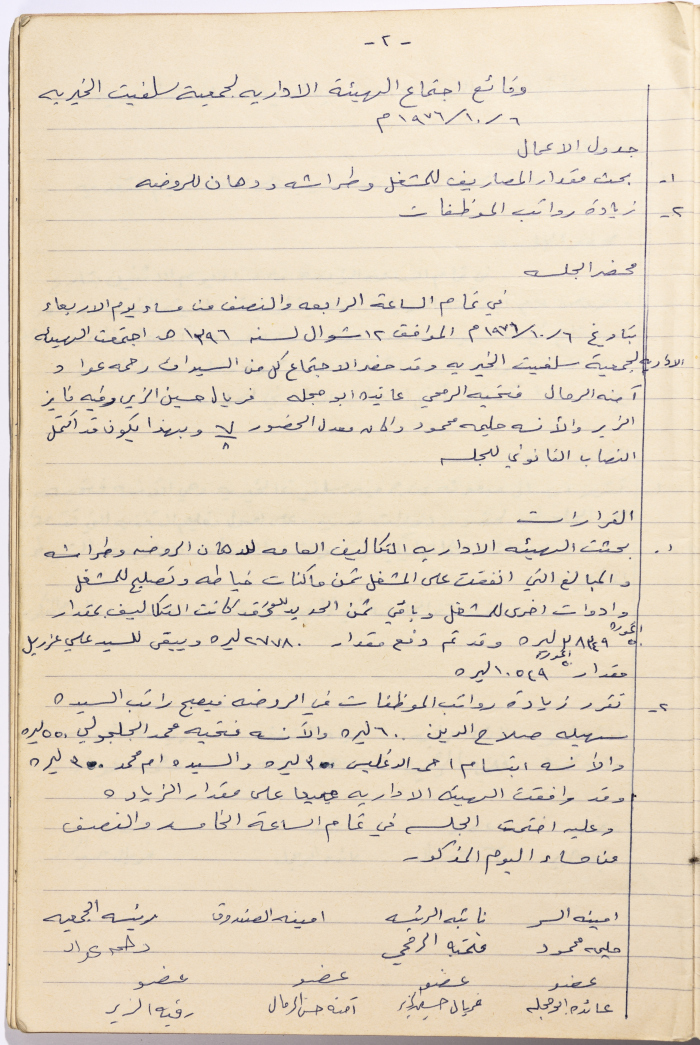 - ٢ -
وقائع اجتماع الهيئة الاداريه لجمعية سلفيت الخيريه
٦/١٠/١٩٧٦ م
جدول الاعمال
١- بحث مقدار المصاريف للمشغل وطراشه ودهان للروضه
٢- زيادة رواتب الموظفات
محضر الجلسه
في تمام الساعة الرابعه والنصف من مساء يوم الاربعاء
بتاريخ ٦/١٠/١٩٧٦ م الموافق ١٢ شوال لسنه ١٣٩٦ هـ اجتمعت الهيئه
الاداريه لجمعية سلفيت الخيريه وقد حضر الاجتماع كل من السيدات رحمه عواد و
آمنه الرمال فتحيه الرمحي عائده ابو حجله فريال حسين الزير رقيه فايز
الزير والأنسه حليمه محمود وكان معدل الحضور ٧/٨ وبهذا يكون قد اكتمل
النصاب القانوني للجلسه
القرارات
١- بحثت الهيئه الاداريه التكاليف العامه للدهان الروضه وطراشه
والمبالغ التي انفقت على المشغل ثمن ماكنات خياطه وتصليح للمشغل
وادوات اخرى للمشغل وباقي ثمن الحديد فقد كانت التكاليف بمقدار
٣٨٣٤٩ ليره وقد تم دفع مقدار ٢٧٧٨٠ ليره ويبقى للسيد علي عزريل
مقدار ١٠٥٢٩ ليره
٢- تقرر زيادة رواتب الموظفات في الروضه فيصبح راتب السيده
سهيله صلاح الدين ٦٠٠ ليره والأنسه فتحيه محمد الجلجولي ٥٥٠ ليره
والأنسه ابتسام احمد الدغليس ٣٠٠ ليره والسيده ام محمد ٣٠٠ ليره
وقد وافقت الهيئه الاداريه جميعا على مقدار الزياده
وعليه اختمت الجلسه في تمام الساعة الخامسه والنصف
من مساء اليوم المذكور
امينه السر نائبه الرئيسه امينه الصندوق رئيسه الجمعيه
حليمه محمود فتحيه الرمحي رحمه عواد
عضو عضو عضو عضو
عائده ابو حجله فريال حسين الزير آمنه حسن الرمال رقيه الزير